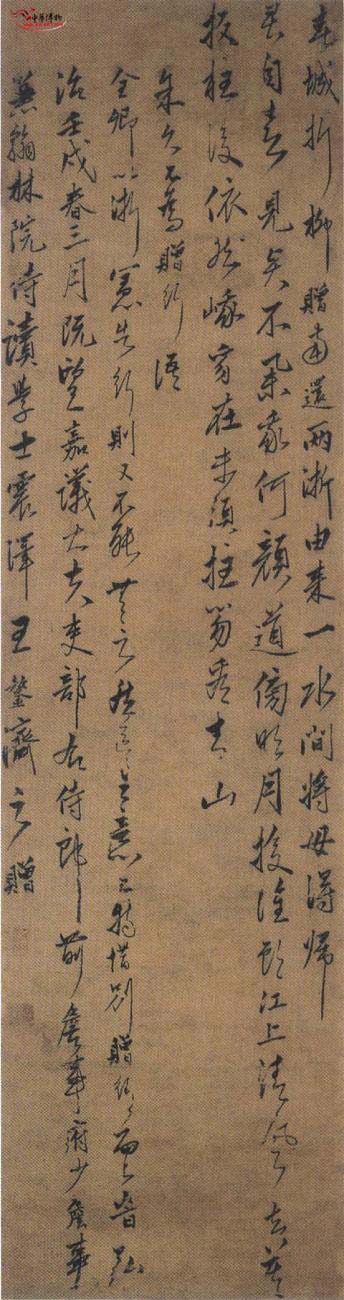 中華博物
春城折柳贈南還兩浙由來一水間將母得歸
君自喜見兵不何顏道傍明月投誰江上清風去莫
扳柱後依然峨豸在未須拄笏看青山
余久不為贈行語
全卿以浙憲告行則又不能無言然之意特惜別贈行而已弘
治壬戌春三月既望嘉議大夫吏部右侍郎前詹事府少詹事
兼翰林院侍讀學士震澤王鏊濟之贈